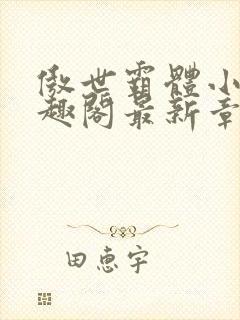 傲世霸體小
趣閣最新章
田恵宇